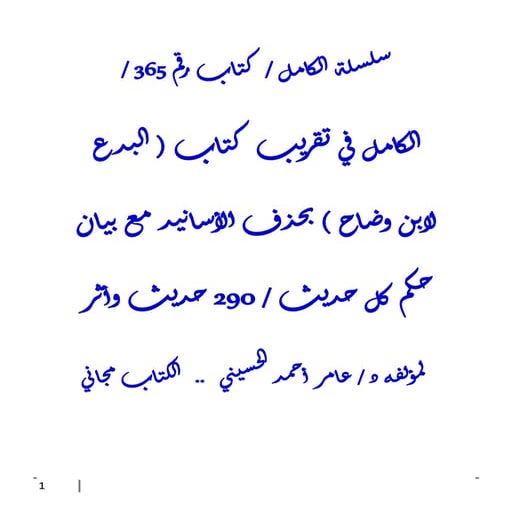 سلسلة الكامل / كتاب رقم 365 /
الكامل في تقريب كتاب ( البدع
لابن وضاح ) بحذف الأسانيد مع بيان
حكم كل حديث / 290 حديث وأثر
لمؤلفه د / عامر أحمد الحسيني .. الكتاب مجاني
1 |